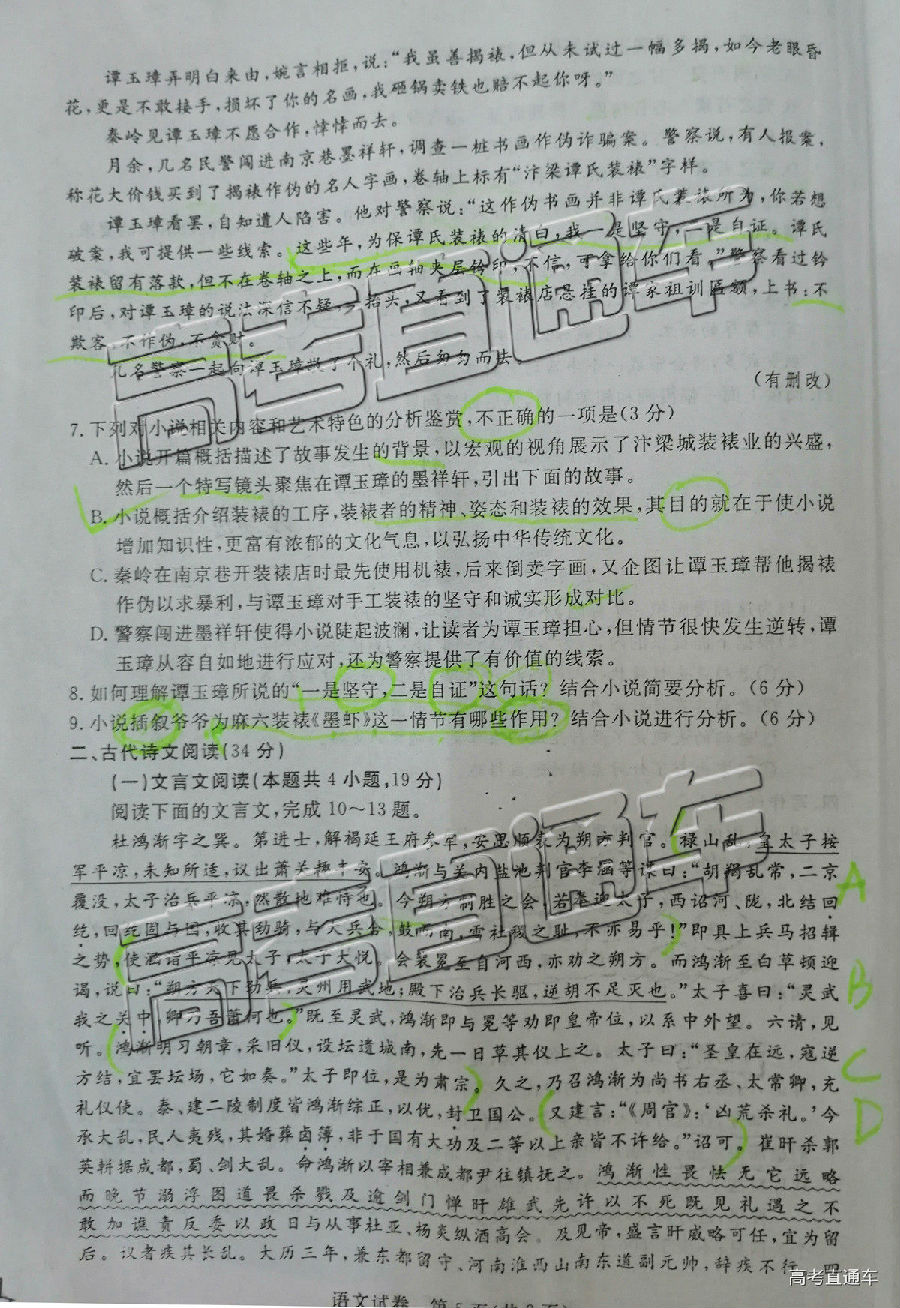 谭玉璋弄明白来由,婉言相拒,说:“我虽善揭裱,但从未试过一幅多揭,如今老眼昏
花,更是不敢接手,损坏了你的名画,我砸锅卖铁也赔不起你呀。”
秦岭见谭玉璋不愿合作,悻悻而去。
月余,几名民警闯进南京巷墨祥轩,调查一桩书画作伪诈骗案。警察说,有人报案,
称花大价钱买到了揭裱作伪的名人字画,卷轴上标有“汴梁谭氏装裱”字样。
谭玉璋看罢,自知遭人陷害。他对警察说:“这作伪书画并非谭氏装裱所为,你若想
破案,我可提供一些线索。这些年,为保谭氏装裱的清白,我一是坚守,二是自证。谭氏
装裱留有落款,但不在卷轴之上,而在画轴夹层钤印,不信,可拿给你们看。”警察看过钤
印后,对谭玉璋的说法深信不疑,一抬头,又看到了装裱店悬挂的谭家祖训匾额,上书:不
欺客,不诈伪,不贪财。
几名警察一起向谭玉璋敬了个礼,然后匆匆而去。
(有删改)
7.下列对小说相关内容和艺术特色的分析鉴赏,不正确的一项是(3分)
A.小说开篇概括描述了故事发生的背景,以宏观的视角展示了汴梁城装裱业的兴盛,
然后一个特写镜头聚焦在谭玉璋的墨祥轩,引出下面的故事。
B.小说概括介绍装裱的工序,装裱者的精神、姿态和装裱的效果,其目的就在于使小说
增加知识性,更富有浓郁的文化气息,以弘扬中华传统文化。
C.秦岭在南京巷开装裱店时最先使用机裱,后来倒卖字画,又企图让谭玉璋帮他揭裱
作伪以求暴利,与谭玉璋对手工装裱的坚守和诚实形成对比。
D.警察闯进墨祥轩使得小说陡起波澜,让读者为谭玉璋担心,但情节很快发生逆转,谭
玉璋从容自如地进行应对,还为警察提供了有价值的线索。
8.如何理解谭玉璋所说的“一是坚守,二是自证”这句话?结合小说简要分析。(6分)
9.小说插叙爷爷为麻六装裱《墨虾》这一情节有哪些作用?结合小说进行分析。(6分)
二、古代诗文阅读(34分)
(一)文言文阅读(本题共4小题,19分)
阅读下面的文言文,完成10～13题。
杜鸿渐字之巽。第进士,解褐延王府参军,安思顺表为朔方判官。禄山乱,皇太子按
军平凉,未知所适,议出萧关趣丰安。鸿渐与关内盐池判官李涵等谋曰:“胡羯乱常,二京
覆没,太子治兵平凉,然散地难恃也。今朔方制胜之会,若奉迎太子,西诏河、陇,北结回
纥,回纥固与国,收其劲骑,与大兵合,鼓而南,雪社稷之耻,不亦易乎!”即具上兵马招辑
之势,使涵诣平凉见太子,太子大悦。会裴冕至自河西,亦劝之朔方。而鸿渐至白草顿迎
谒,说曰:“朔方天下劲兵,灵州用武地;殿下治兵长驱,逆胡不足灭也。”太子喜曰:“灵武
我之关中,卿乃吾萧何也。”既至灵武,鸿渐即与冕等劝即皇帝位,以系中外望。六请,见
听。鸿渐明习朝章,采旧仪,设坛壝城南,先一日草其仪上之。太子曰:“圣皇在远,寇逆
方结,宜罢坛场,它如奏。”太子即位,是为肃宗。久之,乃召鸿渐为尚书右丞、太常卿,充
礼仪使。泰、建二陵制度皆鸿渐综正,以优,封卫国公。又建言:“《周官》:‘凶荒杀礼。’今
承大乱,民人夷残,其婚葬卤簿,非于国有大功及二等以上亲皆不许给。”诏可。崔旰杀郭
英𫐓据成都,蜀、剑大乱。命鸿渐以宰相兼成都尹往镇抚之。鸿渐性畏怯无它远略
而晚节溺浮图道畏杀戮及逾剑门惮旰雄武先许以不死既见礼遇之不
敢加谯责反委以政日与从事杜亚、杨炎纵酒高会。及见帝,盛言旰威略可任,宜为留
后。议者疾其长乱。大历三年,兼东都留守、河南淮西山南东道副元帅,辞疾不行。四
A
B
C
D
高考直通车
高考直通车
高考直通车
语文试卷